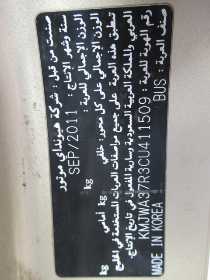 صنعت من قبل : شركة هيونداي موتور
سنة وشهر الانتاج : SEP/2011
الوزن الإجمالي للعربة : kg
الوزن الإجمالي على كل محور: خلفي kg أمامي kg
تطابق هذه العربة على جميع مواصفات العربات المستخدمة في الخليج
العربي والمملكة العربية السعودية سارية المفعول في تاريخ الانتاج.
رقم الهوية للعربة : KMJWA37R3CU411509
صنف العربة : BUS
MADE IN KOREA